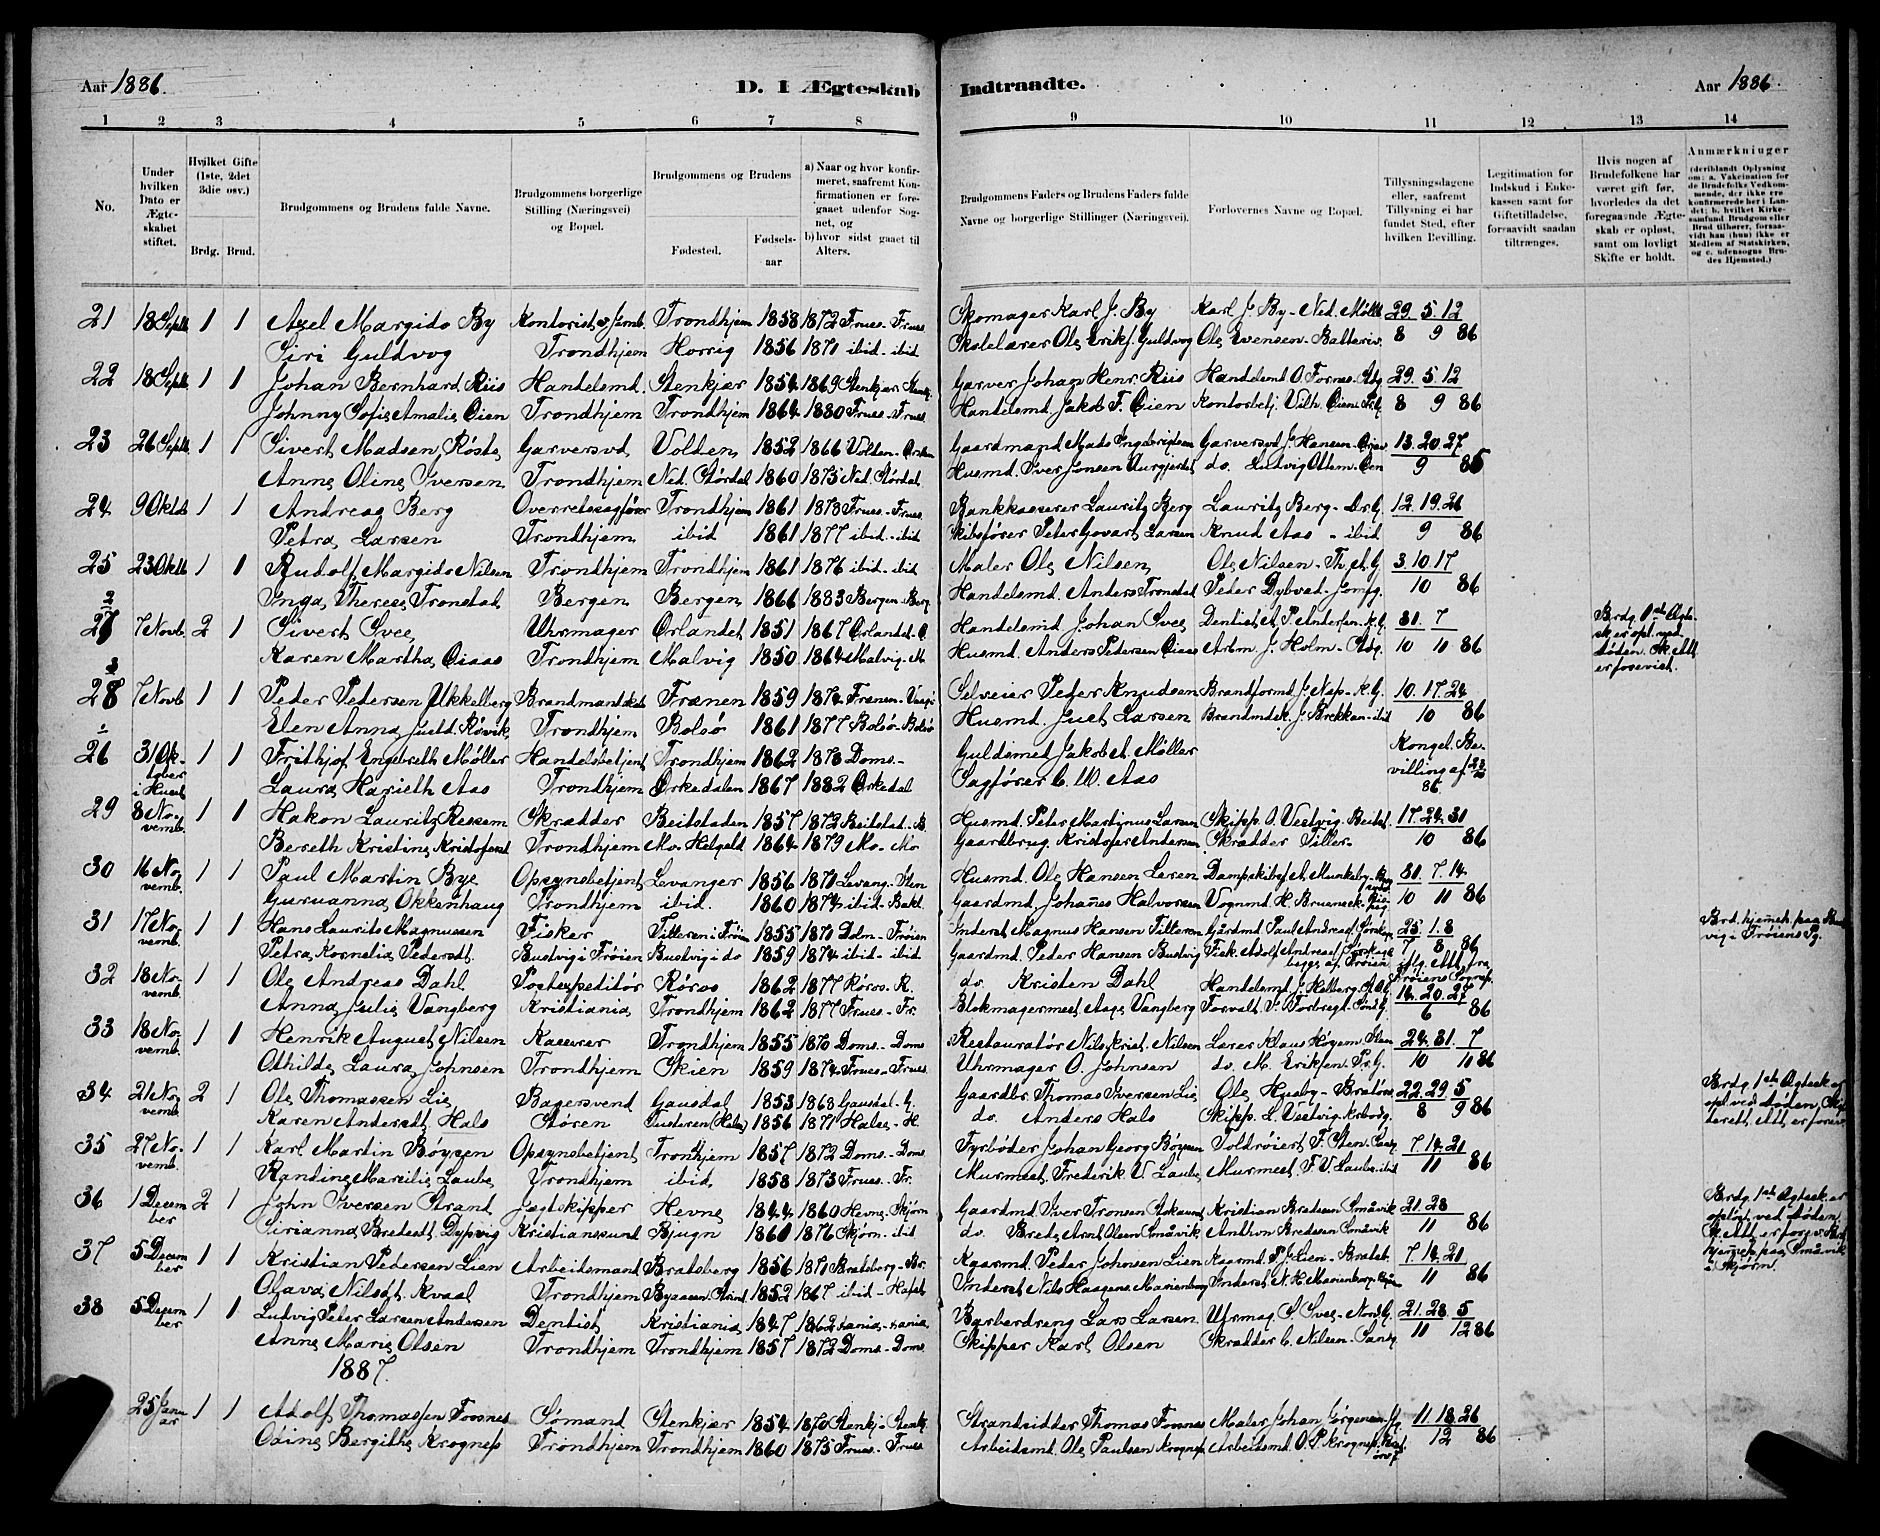 Aar 1886.
D. I Ægteskab
1 2 3 4 5 6 7 8
No.
Under hvilken Dato er Ægteskabet stiftet.
Hvilket Gifte (1ste, 2det 3die osv.)
Brdg. Brud.
Brudgommens og Brudens fulde Navne.
Brudgommens borgerlige Stilling (Næringsvei) og Bopæl.
Brudgommens og Brudens
Fødested. Fødselsaar
a) Naar og hvor konfirmeret, saafremt Konfirmationen er foregaaet udenfor Sognet, og
b) hvor sidst gaaet til Alters.
21 18 Septb 1 1 Axel Margido By Kontorist Trondhjem 1858 1872 Frues - Frues
Siri Guldvog Trondhjem 1856 1870 ibid - ibid
22 18 Septb 1 1 Johan Bernhard Riis Handelsmd. Stenkjær 1854 1869 Stenkjær
Johnny Sofie Amalie Øien Trondhjem Trondhjem 1864 1880 Frues - Frues
23 26 Septb 1 1 Sivert Madsen Røste Garversvd Volden 1852 1866 Volden
Anne Oline Iversen Trondhjem Ned. Størdal 1860 1875 Ned. Størdal
24 9 Oktb 1 1 Andreas Berg Overretssagfører Trondhjem 1861 1878 Frues - Frues
Petra Larsen Trondhjem ibid 1861 1877 ibid - ibid
25 23 Oktb 1 1 Rudolf Margido Nilsen Trondhjem Trondhjem 1861 1876 ibid - ibid
Inga Therese Tronstad Bergen Bergen 1866 1883 Bergen - Berg
27 7 Novb 2 1 Sivert Svee Uhrmager Ørlandet 1851 1867 Ørlandet - Ø.
Karen Martha Oiaas Trondhjem Malvig 1850 1864 Malvig - M
28 7 Novb 1 1 Peder Pedersen Ukkelberg Frænen 1859 1874 Frænen
Elen Anna Røsvik Trondhjem Bolsø 1861 1877 Bolsø - Bolsø
26 31 Oktober i Huset 1 1 Frithjof Engebreth Møller Handelsbetjent Trondhjem 1862 1878 Doms -
Laura Harieth Aas Trondhjem Ørkedalen 1867 1882 Ørkedal
29 8 Novemb. 1 1 Hakon Lauritz Ressem Skrædder Beitstaden 1857 1872 Beitstad - B.
Bereth Kristine Kristofersd Trondhjem Mo. Helgeld 1864 1879 Mo - Mo
30 16 Novemb. 1 1 Paul Martin Bye Opsynsbetjent Levanger 1856 1870 Levang.
Guruanna Okkenhaug Trondhjem ibid. 1860 1874 ibid - Bakl.
31 17 Novemb. 1 1 Hans Laurits Magnussen Fisker Titteren i Frøien 1855 1870 Dolm - Frøien
Petra Kornelia Pedersdt. Bustvig i Frøien Bustvig i do 1859 1874 ibid - ibid
32 18 Novemb. 1 1 Ole Andreas Dahl Postexpeditør Røros 1862 1877 Røros - R.
Anna Julie Vangberg Kristiania Trondhjem 1862 1877 Frues - Fr.
33 18 Novemb. 1 1 Henrik August Nilsen Kasserer Trondhjem 1855 1870 Doms - Doms
Othilde Laura Johnsen Trondhjem Skien 1859 1874 Frues - Frues
34 21 Novemb. 2 1 Ole Thomassen Lie Bagersvend Gausdal 1853 1868 Gausdal - G.
Karen Andersdt Hals Støren Tusteren (Halse) 1856 1871 Halse - H.
35 27 Novemb. 1 1 Karl Martin Bøysen Opsynsbetjent Trondhjem 1857 1872 Doms - Doms
Randine Marsilie Laube Trondhjem ibid 1858 1873 Frues - Fr.
36 1 December 2 1 John Iversen Strand Jagtskipper Hevne 1844 1860 Hevne - Skjørn
Sirianna Bredesdt Dypvig Kristianssund Bjugn 1860 1876 Skjørn - ibid
37 5 December 1 1 Kristian Pedersen Lien Arbeidsmand Bratsberg 1856 1870 Bratsberg - Br.
Olava Nilsdt. Kvaal Trondhjem Byaasen 1852 1867 ibid
38 5 December 1 1 Ludvig Peter Larsen Andersen Dentist Kristiania 1847 1862
Anne Marie Olsen Trondhjem Trondhjem 1857 1872 Doms - Doms
1887.
25 Januar 1 1 Adolf Thomassen Fosnes Sømand Stenkjær 1854 1870 Stenkj
Odine Bergithe Krognes Trondhjem Trondhjem 1860 1875 Frues - Frues
Indtraadte.
Aar 1886.
9 10 11 12 13 14
Brudgommens Faders og Brudens Faders fulde Navne og borgerlige Stillinger (Næringsvei).
Forlovernes Navne og Bopæl.
Tillysningsdagene eller, saafremt Tillysning ei har fundet Sted, efter hvilken Bevilling.
Legitimation for Indskud i Enkekassen samt for Giftetilladelse, forsaavidt saadan tiltrænges.
Hvis nogen af Brudefolkene har været gift før, hvorledes da det foregaaende Ægteskab er opløst, samt om lovligt Skifte er holdt.
Anmærkninger
(deriblandt Oplysning om: a. Vakcination for de Brudefolks Vedkommende, der ikke ere konfirmerede her i Landet; b. hvilket Kirkesamfund Brudgom eller Brud tilhører, forsaavidt han (hun) ikke er Medlem af Statskirken, og c. udensogns Brudes Hjemsted.)
Skomager Karl J. By Karl J. By - Ned. Møllb 29. 5. 12
Skolelærer Ole Eriks. Guldvog Ole Evensen - Batteriv. 8 9 86
Garver Johan Henr. Riis Handelsmd O. Fornes 29. 5. 12
Handelsmd Jakob F. Øien Kontorbetj. Vilh. Øien 8 9 86
Gaardmand Mads Ingebrigtsen Garversvd J. Hansen 13. 20. 27
Husmd. Iver Jonsen Aurgjerdet do. Ludvig Oldem 9 86
Bankkasserer Lauritz Berg Lauritz Berg - Dr. G. 12. 19. 26
Skibsfører Peter Govart Larsen Knud Aas - ibid 9 86
Maler Ole Nilsen Ole Nilsen - Th. A. G 3. 10. 17
Handelsmd. Anders Tronstad Peder Dybvad - Jomfg. 10 86
Handelsmd Johan Svee Dentist A. P. Andersen - K. G. 31. 7
Husmd. Anders Pedersen Oiaas Arbm. J. Holm 10 11 86
Brdg. 1ste Ægtesk er opl. ved Døden. Sk. Att. er forevist.
Selveier Peder Knudsen Brandformd J. Næss - K. G. 10. 17. 24
Husmd. Just Larsen Brandmdsk. J. Brekkan - ibid 10 86
Guldsmed Jakob A. Møller Kongel. Bevilling af
Sagfører C. W. Aas 86
Husmd. Peter Martinus Larsen Skipp O. Vestvig - Beitst. 17. 24. 31
Gaardbrug. Kristofer Andersen Skrædder Tiller 10 86
Husmd. Ole Hansen Leren Dampskibsf. A. Munkeby 31. 7. 14
Gaardmd. Johanes Halvorsen Vognmd H. Bruenech 10 11 86
Inderst Magnus Hansen Titteren Gårdmd Paul Andreas 25. 1. 8
Gaardmd. Peder Hansen Bustvig Fisk. Adolf Andreas begge af Frøien 7 8 86 iflg. Att. fra Frøiens Sognep.
Brd. hjemeh. paa Bustvig i Frøiens Pg.
do. Kristen Dahl Handelsmd J. Hetberg 20. 27
Blokmagermest. Aage Vangberg Torvalt V. Forbregt 6 86
Restauratør Nils Krist. Nilsen Lærer Klaus Høyem 24. 31. 7
Uhrmager O. Johnsen do. M. Eriksen - Pr. G. 10 11 86
Gaardbr. Thomas Iversen Lie Ole Husby - Bratøren 22. 29. 5
do. Anders Hals Skipp. L. Vestvig 8 9 86
Brdg. 1ste Ægtesk er opl. ved Døden, Skifterett. Att. er forev.
Fyrbøder Johan Georg Bøysen Toldrøiert F. Sten 7. 14. 21
Murmest. Frederik V. Laube Murmest. F. V. Laube - ibid 11 86
Gaardmd. Iver Tronsen Stoksund Kristian Bredesen Småvik 21. 28
do. Brede Arnt Olsen Småvik Anthon Bredesen Småvik 11 86
Brdg. 1ste Ægtesk. er opløst ved Døden. Sk. Att. er forev. Brd. hjemeh. paa Småvik i Skjørn.
Gaardmd. Peder Johnsen Lien Gaardmd. P. J. Lien - Bratsb. 7. 14. 21
Inderst Nils Haagens. Marienborg Inderst N. H. Marienborg 11 86
Byarberdreng Lars Larsen Urmag. S. Svee - Nord. G. 21. 28. 5
Skipper Karl Olsen Skrædder C. Nilsen 11 12 86
Strandsidder Thomas Fosnes Maler Johan Jørgensen 11. 18. 26
Arbeidsmd. Ole Paulsen Krognes Arbeidsmd. O. P. Krognes 12 86